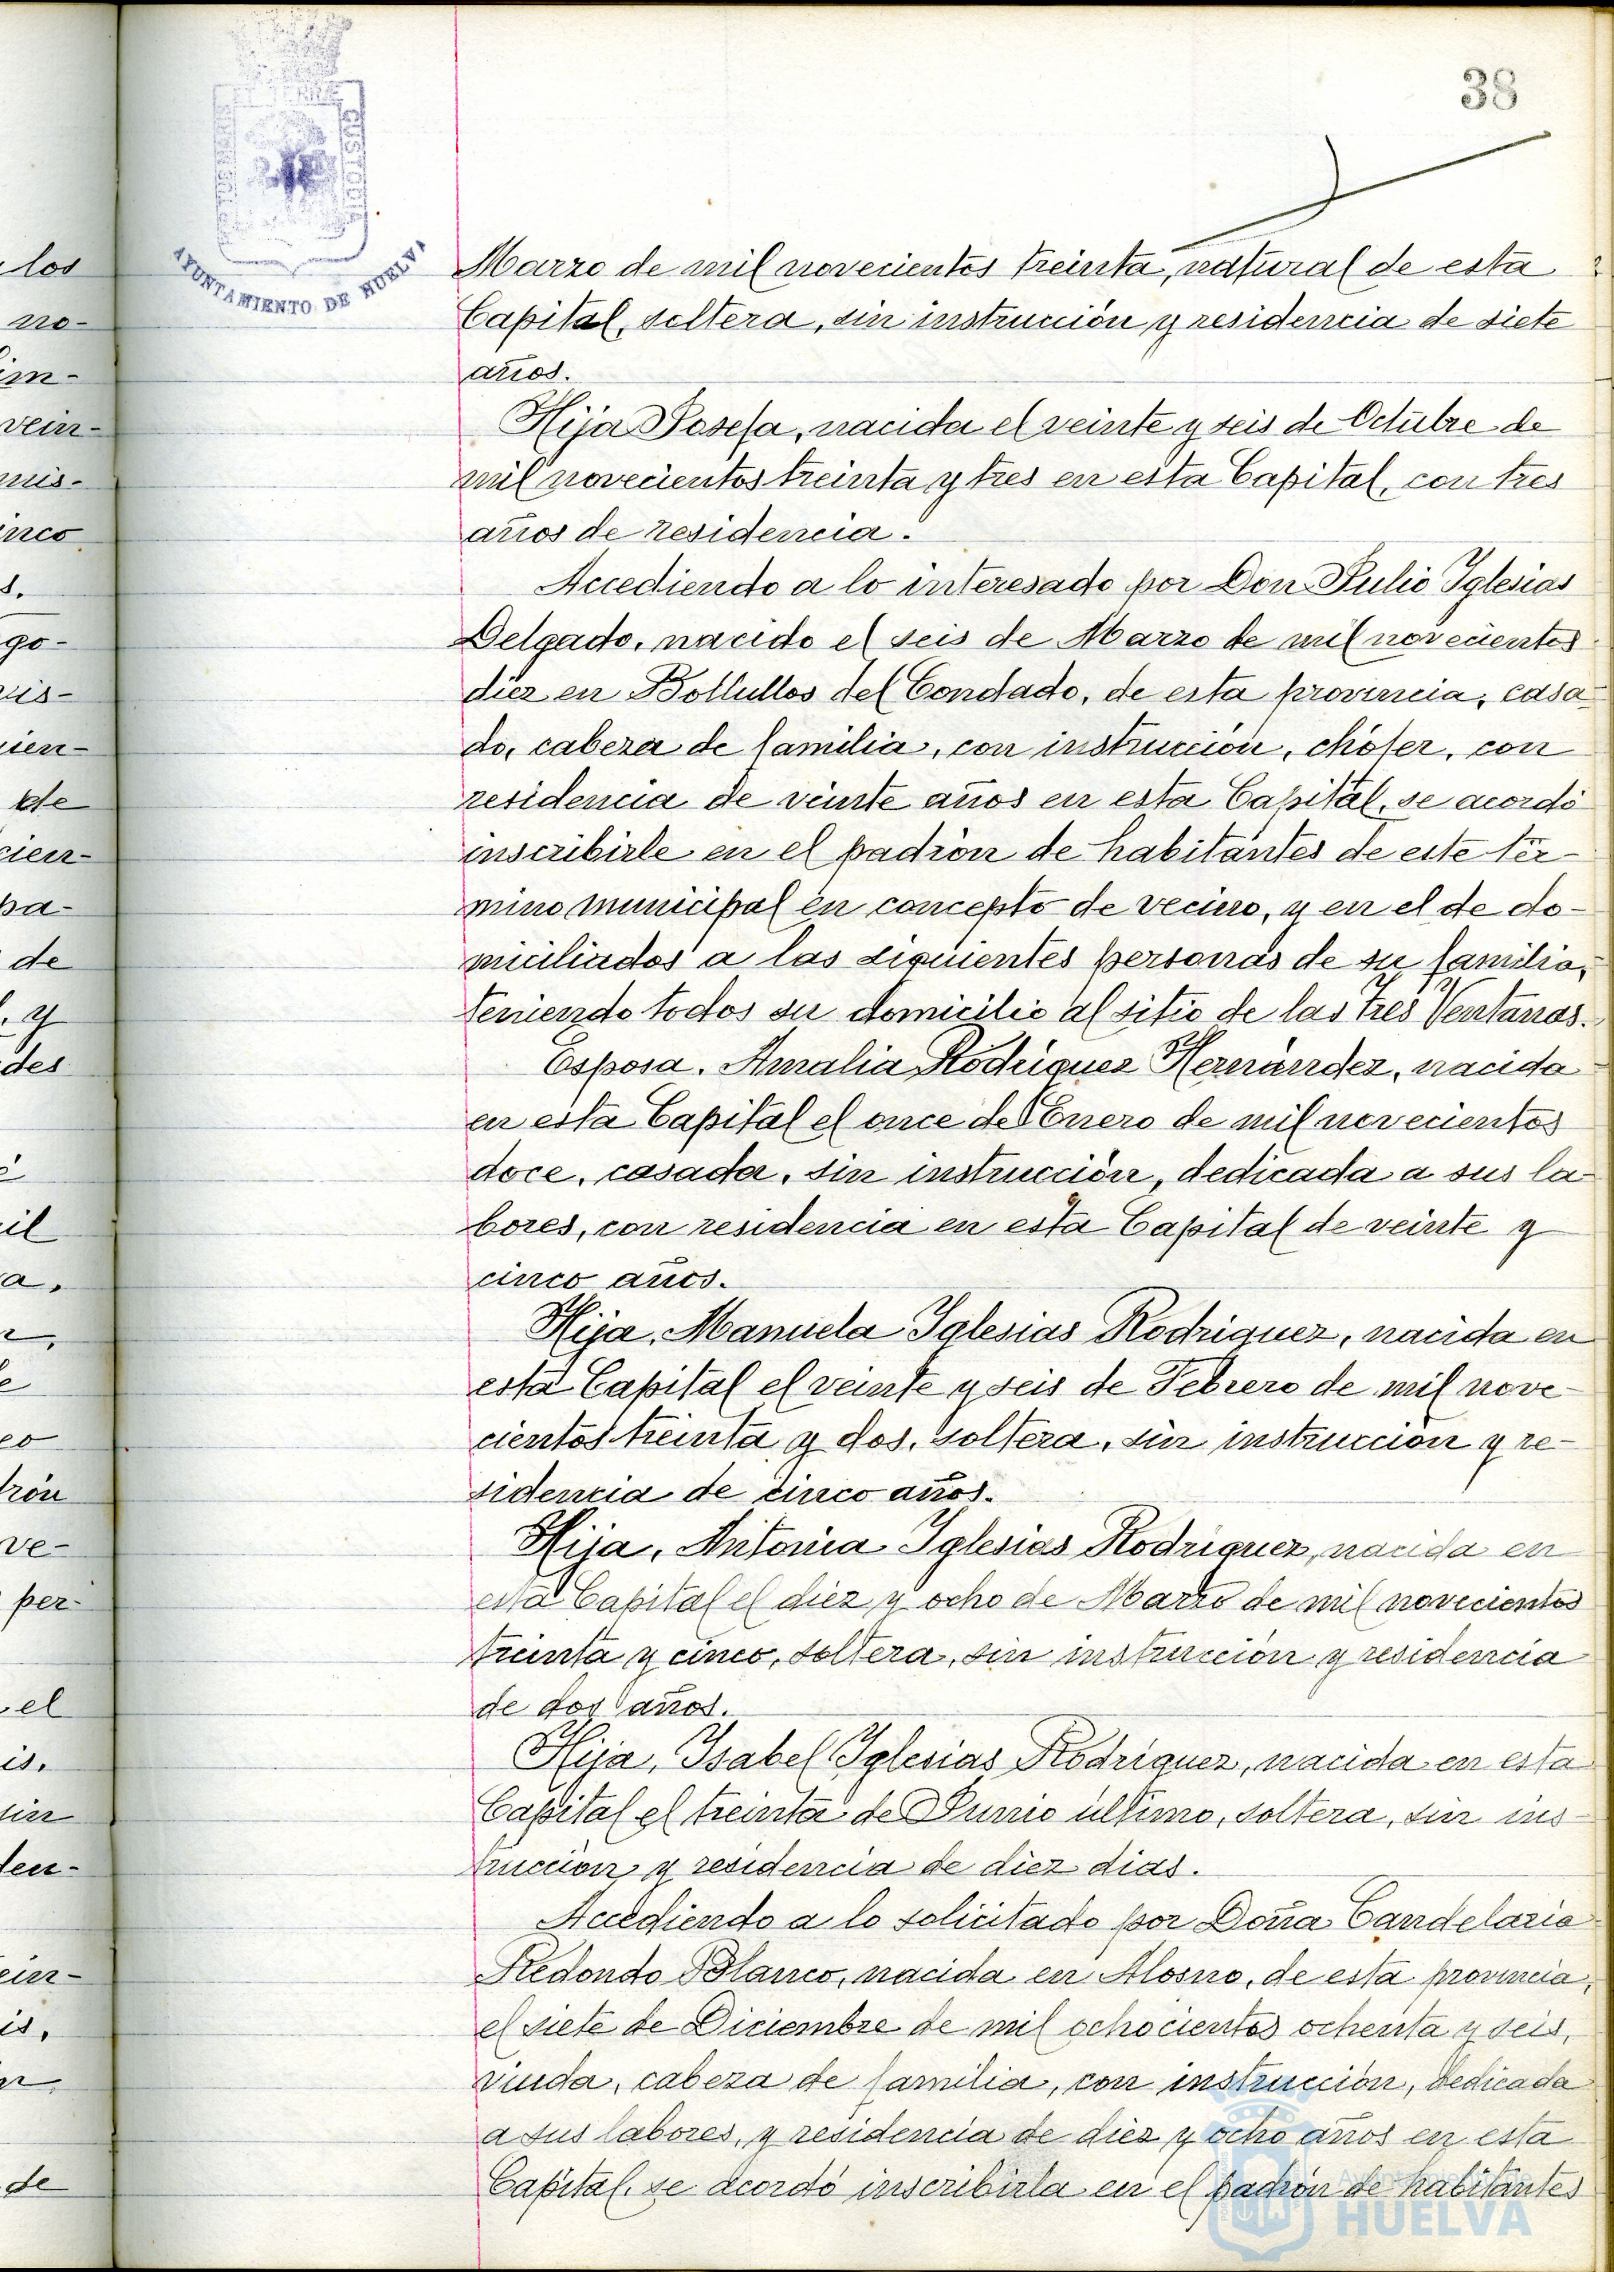 38
PORTUS MARIS ET TERRE CUSTODIA
AYUNTAMIENTO DE HUELVA
Marzo de mil novecientos treinta, natural de esta
Capital, soltera, sin instrucción y residencia de siete
años.
Hija Josefa, nacida el veinte y seis de Octubre de
mil novecientos treinta y tres en esta Capital, con tres
años de residencia.
Accediendo a lo interesado por Don Julio Yglesias
Delgado, nacido el seis de Marzo de mil novecientos
diez en Bollullos del Condado, de esta provincia, casa-
do, cabeza de familia, con instrucción, chófer, con
residencia de veinte años en esta Capital, se acordó
inscribirle en el padrón de habitantes de este tér-
mino municipal en concepto de vecino, y en el de do-
miciliados a las siguientes personas de su familia,
teniendo todos su domicilio al sitio de las tres Ventanas.
Esposa, Amalia Rodríguez Hernández, nacida
en esta Capital el once de Enero de mil novecientos
doce, casada, sin instrucción, dedicada a sus la-
bores, con residencia en esta Capital de veinte y
cinco años.
Hija, Manuela Yglesias Rodriguez, nacida en
esta Capital el veinte y seis de Febrero de mil nove-
cientos treinta y dos, soltera, sin instrucción y re-
sidencia de cinco años.
Hija, Antonia Yglesias Rodriguez, nacida en
esta Capital el diez y ocho de Marzo de mil novecientos
treinta y cinco, soltera, sin instrucción y residencia
de dos años.
Hija, Ysabel Yglesias Rodriguez, nacida en esta
Capital el treinta de Junio último, soltera, sin ins-
trucción y residencia de diez dias.
Accediendo a lo solicitado por Doña Candelaria
Redondo Blanco, nacida en Alosno, de esta provincia,
el siete de Diciembre de mil ochocientos ochenta y seis,
viuda, cabeza de familia, con instrucción, dedicada
a sus labores, y residencia de diez y ocho años en esta
Capital, se acordó inscribirla en el padrón de habitantes
Ayuntamiento de
HUELVA
los
no-
im-
vein-
mis-
inco
s.
go-
uis-
cien-
de
cien-
pa-
de
. y
des
il
a,
rón
ve-
per-
el
is.
sin
den-
ein-
is,
de